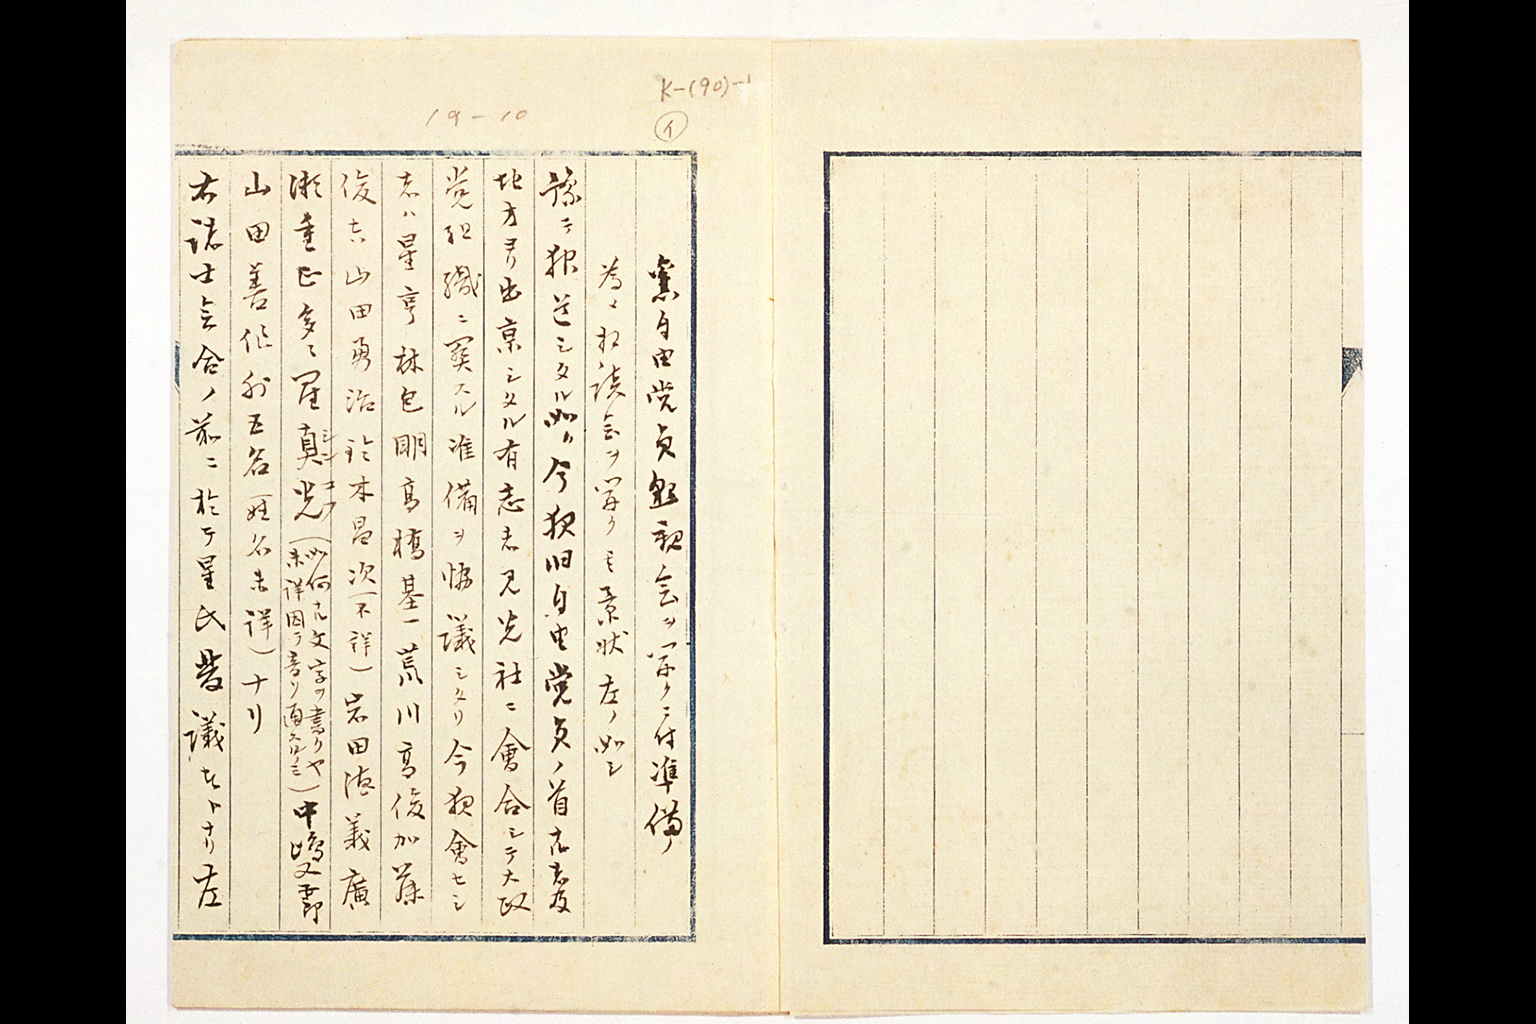 K-(90)-1
19-10
イ
旧自由党員懇親会ヲ開クニ付準備ノ
為メ相談会ヲ開クモ景状左ノ如シ
予テ報道シタル如ク今般旧自由党員ノ首唱者及
地方ヨリ出京シタル有志者見光社ニ會合シテ大政
党組織ニ関スル准備ヲ協議シタリ今般會セシ
者ハ星亨林包明高橋基一荒川高俊加藤
俊吉山田勇治鈴木昌次(不詳)岩田徳義廣
瀬重正多々羅真光(如何ナル文字ヲ書クヤ未詳因テ音リ通スルノミ)中嶋又五郎
シンコウ
山田善作外五名(姓名未詳)ナリ
右諸士会合ノ前ニ於テ星氏発議者トナリ左